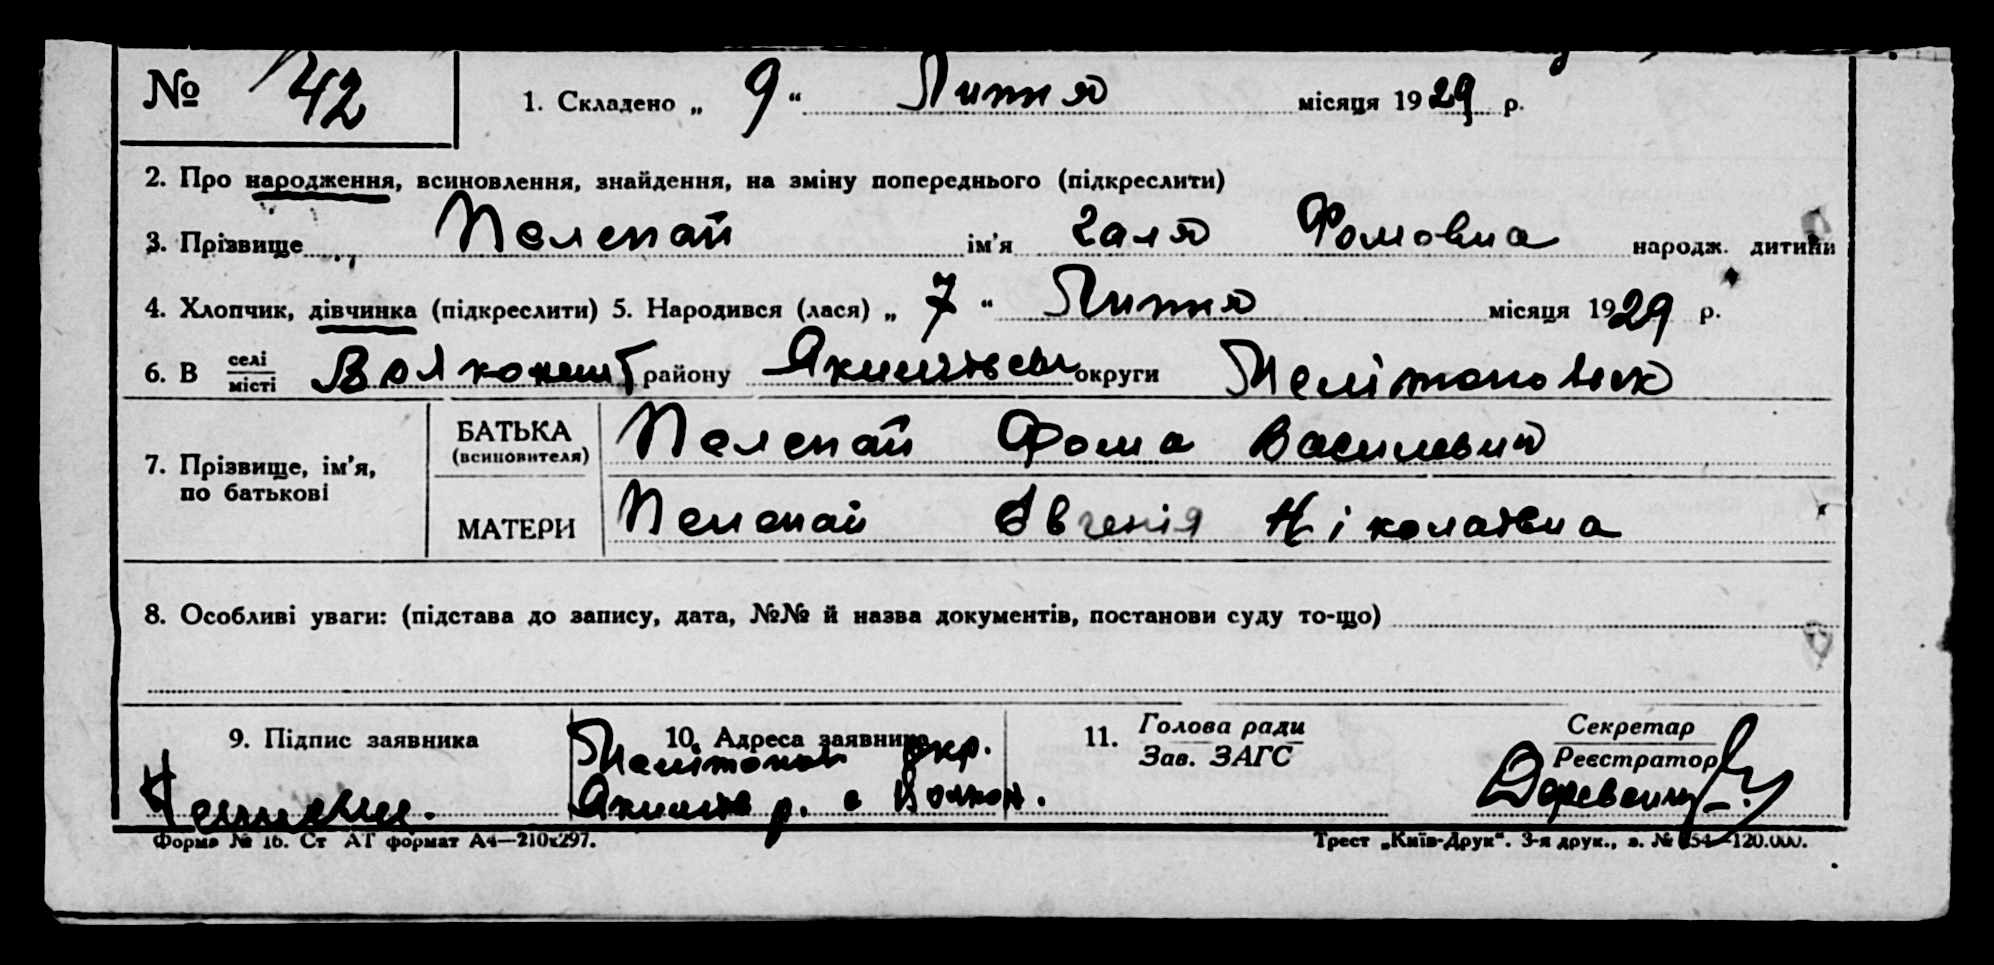 № 42 1. Складено „ 9 “ Липня місяця 1929 р.
2. Про народження, всиновлення, знайдення, на зміну попереднього (підкреслити)
3. Прізвище Пелепай ім’я Галя Фомовна народж. дитини
4. Хлопчик, дівчинка (підкреслити) 5. Народився (лася) „ 7 “ Липня місяця 1929 р.
6. В селі/місті району округи Мелітопольск
7. Прізвище, ім’я, по батькові
БАТЬКА (всиновителя) Пелепай Фома Василевий
МАТЕРИ Пелепай Євгенія Ніколаівна
8. Особливі уваги: (підстава до запису, дата, №№ й назва документів, постанови суду то-що)
9. Підпис заявника 10. Адреса заявника 11. Голова ради Секретар
Зав. ЗАГС Реєстратор
Мелітопол окр.
Якимів р. с
Форма № 16. Ст АТ формат А4—210х297. Трест „Київ-Друк“. 3-я друк., з. № 54—120.000.